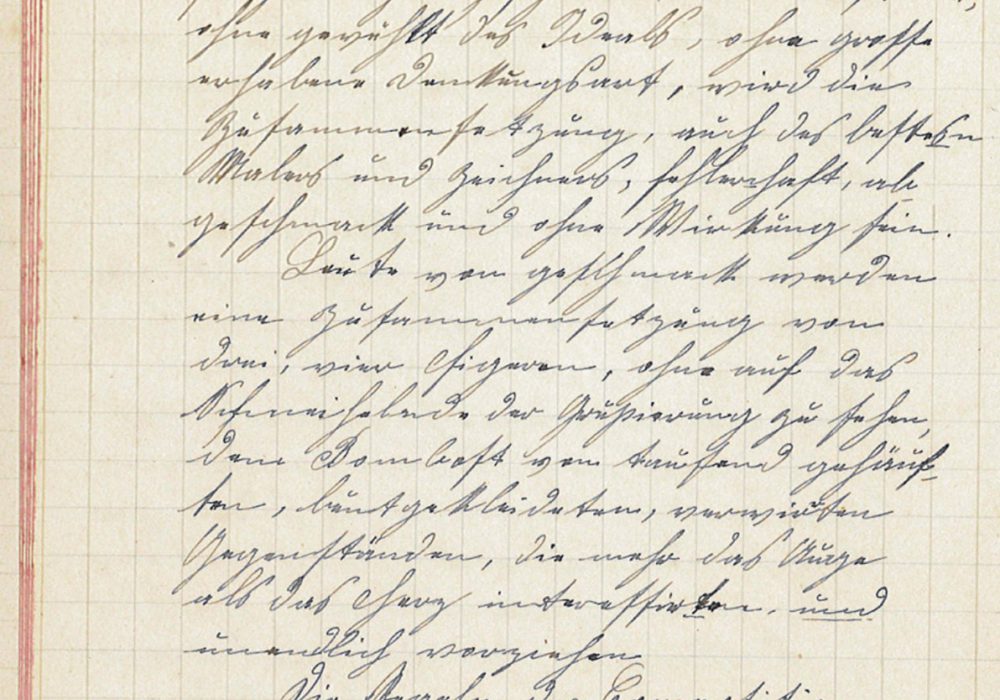 ohne gevühlt des Ideals, ohne grosse
erhabene Denkungsart, wird die
Zusammensetzung, auch des besten
Malers und Zeichners, fehlerhaft, ab
geschmackt und ohne Wirkung sein.
Leute von geschmack werden
eine Zusammensetzung von
drei, vier Figeren, ohne auf das
der Grupierung zu sehen,
dem Bombast von taufend gehäuf-
ten, buntgekleideten, verwirten
Gegenständen, die mehr das Auge
als das Herz interessirten. und
unendlich vorziehen
Die Regeln der